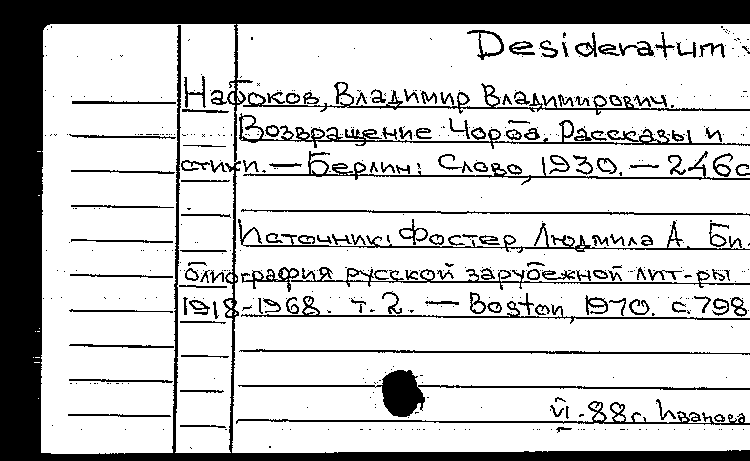 Desideratum
Набоков, Владимир Владимирович.
Возвращение Чорба. Рассказы и
стихи. — Берлин: Слово, 1930. — 246с
Источник: Фостер, Людмила А. Би
блиография русской зарубежной лит-ры
1918-1968. т. 2. — Boston, 1970. с. 798
VI-88г. Иванова